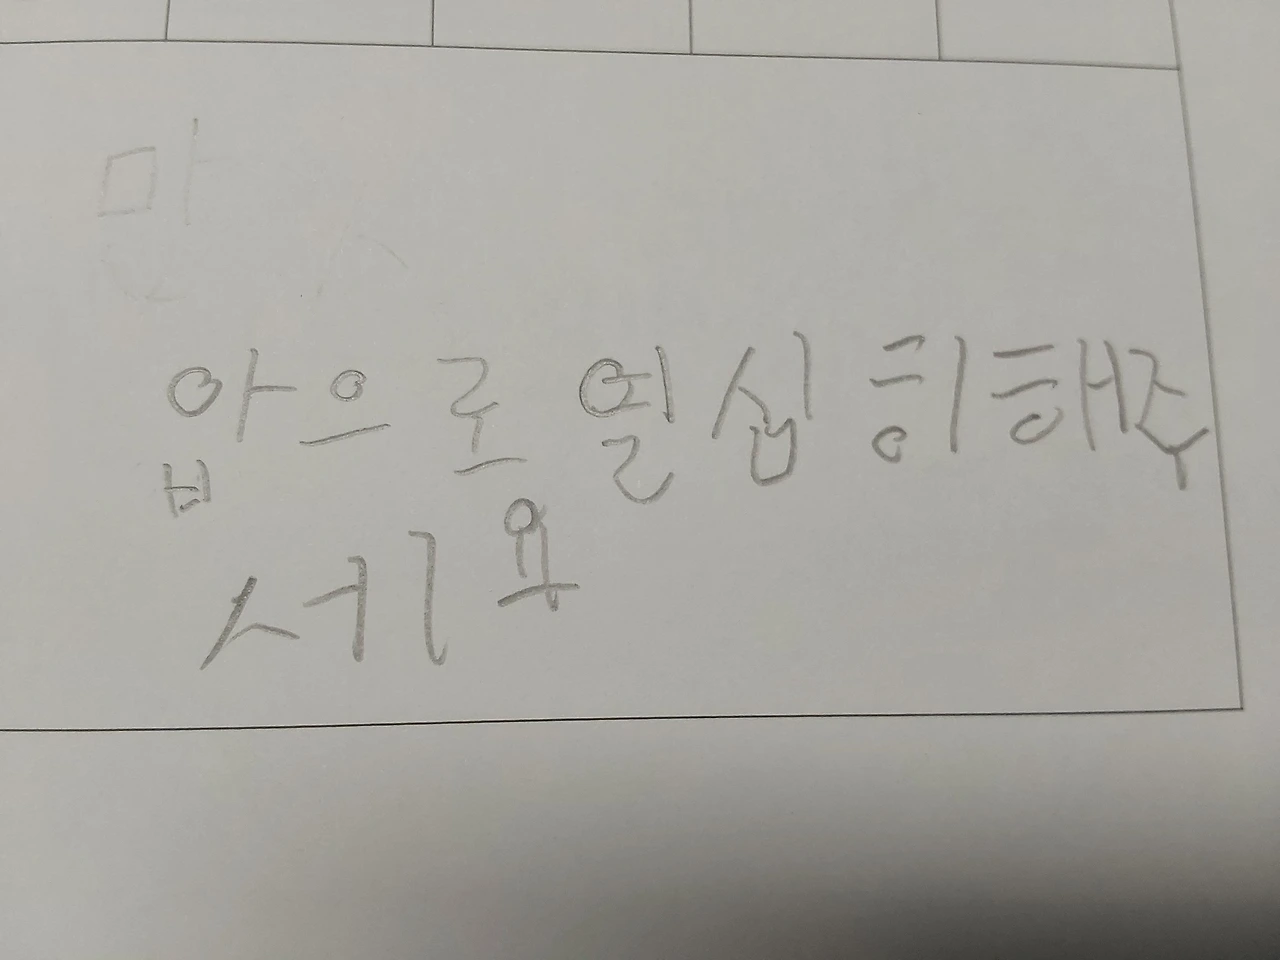 압으로열심히해주
세요